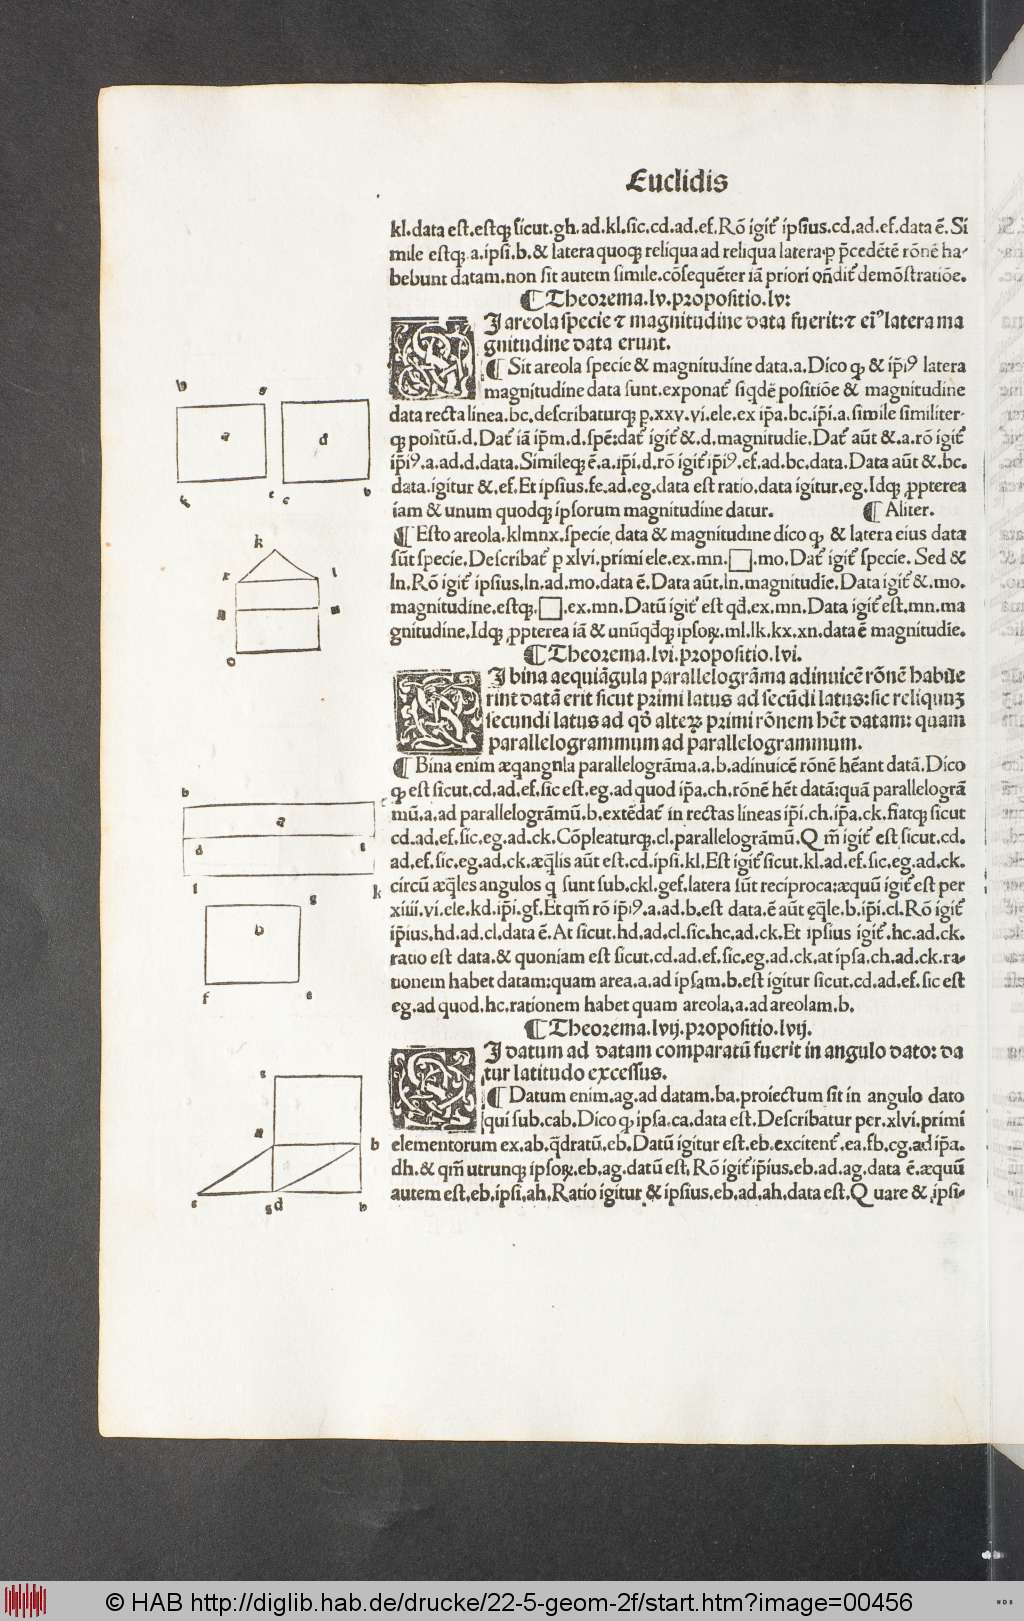 Euclidis
kl.data est.estqꝫ sicut.gh.ad.kl.sic.cd.ad.ef.Rõ igit̃ ipsius.cd.ad.ef.data ẽ.Si
mile estqꝫ a.ipsi.b.& latera quoqꝫ reliqua ad reliqua latera.p p̃cedẽtẽ rõnẽ ha-
bebunt datam.non sit autem simile.cõsequẽter iã priori oñdit̃ demõstratiõe.
¶Theorema.lv.propositio.lv:
SI areola specie ⁊ magnitudine data fuerit:⁊ eiꝰ latera ma
gnitudine data erunt.
¶ Sit areola specie & magnitudine data.a.Dico qꝫ & ip̃iꝰ latera
magnitudine data sunt.exponat̃ siqdẽ positiõe & magnitudine
data recta linea.bc,describaturqꝫ ꝑ.xxv.vi.ele.ex ip̃a.bc.ip̃i.a.simile similiter-
qꝫ positũ.d.Dat̃ iã ip̃m.d.spẽ:dat̃ igit̃ &.d.magnitudĩe.Dat̃ aũt &.a.rõ igit̃
ip̃iꝰ.a.ad.d.data.Simileqꝫ ẽ.a.ip̃i.d.rõ igit̃ ip̃iꝰ.ef.ad.bc.data.Data aũt &.bc.
data.igitur &.ef.Et ipsius.fe.ad.eg.data est ratio.data igitur.eg.Idqꝫ ꝓpterea
iam & unum quodqꝫ ipsorum magnitudine datur. ¶Aliter.
¶Esto areola.klmnx.specie data & magnitudine dico qꝫ & latera eius data
sũt specie.Describat̃ ꝑ xlvi.primi ele.ex.mn.□.mo.Dat̃ igit̃ specie. Sed &
ln.Rõ igit̃ ipsius.ln.ad.mo.data ẽ.Data aũt.ln.magnitudĩe.Data igit̃ &.mo.
magnitudine.estqꝫ.□.ex.mn.Datũ igit̃ est qd̃.ex.mn.Data igit̃ est.mn.ma
gnitudine.Idqꝫ ꝓpterea iã & unũqd̃qꝫ ipsoꝝ.ml.lk.kx.xn.data ẽ magnitudĩe.
¶Theorema.lvi.propositio.lvi.
SI bina aequiãgula parallelogrãma adinuicẽ rõnẽ habue
rint datã erit sicut primi latus ad secũdi latus:sic reliquuꝫ
secundi latus ad qd̃ alteꝝ primi rõnem hẽt datam: quam
parallelogrammum ad parallelogrammum.
¶Bina enim æqangula parallelogrãma.a.b.adinuicẽ rõnẽ hẽant datã.Dico
qꝫ est sicut.cd.ad.ef.sic est.eg.ad quod ip̃a.ch.rõnẽ hẽt datã:quã parallelogrã
mũ.a.ad parallelogrãmũ.b.extẽdat̃ in rectas lineas ip̃i.ch.ip̃a.ck.fiatqꝫ sicut
cd.ad.ef.sic.eg.ad.ck.Cõpleaturqꝫ.cl.parallelogrãmũ.Qm̃ igit̃ est sicut.cd.
ad.ef.sic.eg.ad.ck.æq̃lis aũt est.cd.ipsi.kl.Est igit̃ sicut.kl.ad.ef.sic.eg.ad.ck.
circũ æq̃les angulos q̃ sunt sub.ckl.gef.latera sũt reciproca:æquũ igit̃ est per
xiiii.vi.ele.kd.ip̃i.gf.Et qm̃ rõ ip̃iꝰ.a.ad.b.est data.ẽ aũt ęq̃le.b.ip̃i.cl.Rõ igit̃
ip̃ius.hd.ad.cl.data ẽ.At sicut.hd.ad.cl.sic.hc.ad.ck.Et ipsius igit̃.hc.ad.ck.
ratio est data.& quoniam est sicut.cd.ad.ef.sic.eg.ad.ck.at ipsa.ch.ad.ck.ra-
tionem habet datam:quam area.a.ad ipsam.b.est igitur sicut.cd.ad.ef.sic est
eg.ad quod.hc.rationem habet quam areola.a.ad areolam.b.
¶Theorema.lvij.propositio.lvij.
SI datum ad datam comparatũ fuerit in angulo dato: da
tur latitudo excessus.
¶Datum enim.ag.ad datam.ba.proiectum sit in angulo dato
qui sub.cab.Dico qꝫ ipsa.ca.data est.Describatur per.xlvi.primi
elementorum ex.ab.q̃dratũ.eb.Datũ igitur est.eb.excitent̃.ea.fb.cg.ad ip̃a.
dh.& qm̃ utrunqꝫ ipsoꝝ.eb.ag.datũ est.Rõ igit̃ ip̃ius.eb.ad.ag.data ẽ.æquũ
autem est.eb.ipsi.ah.Ratio igitur & ipsius.eb.ad.ah.data est.Quare & ipsi-
b g
a d
e c b
k
l
o
b
a
d
l k
g
b
f e
b
g d b
© HAB http://diglib.hab.de/drucke/22-5-geom-2f/start.htm?image=00456